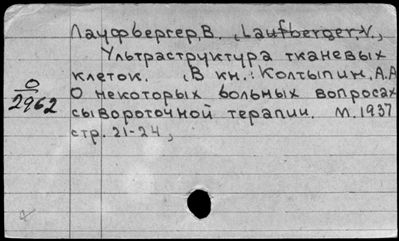 Лауфбергер, В. , Laufberger, V.,
Ультраструктура тканевых
клеток. , В кн.: Колтыпин, А.А
О некоторых больных вопросах
сывороточной терапии. М. 1937
стр. 21-24,
O
2962